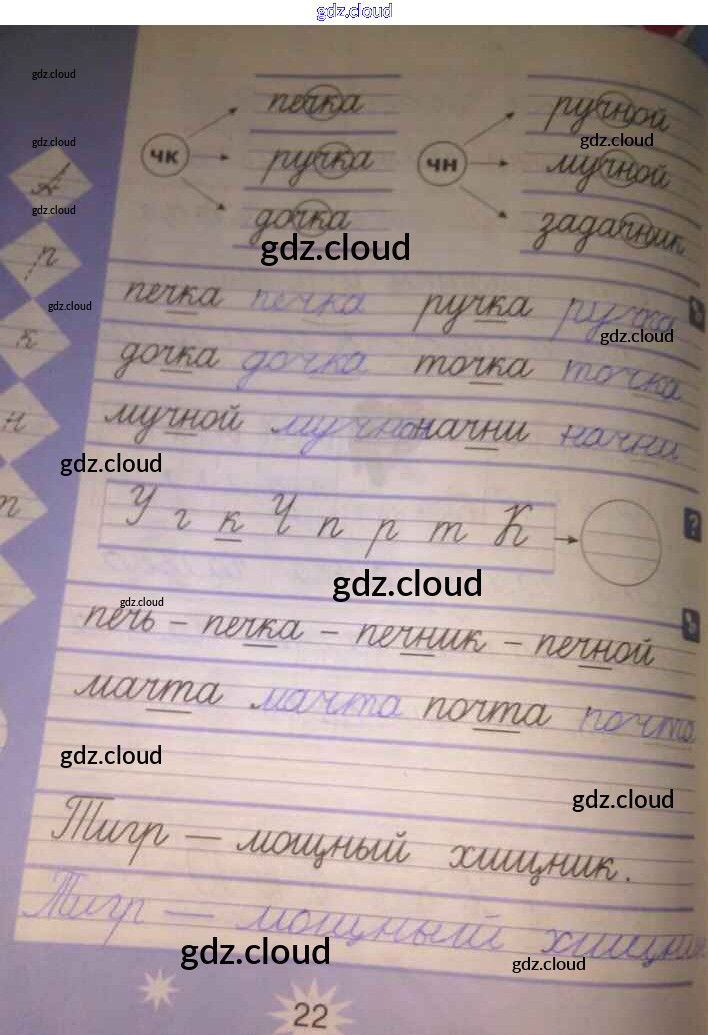 gdz.cloud
gdz.cloud
печка
ручной
чк
ручка
чн
мучной
gdz.cloud
gdz.cloud
дочка
задачник
gdz.cloud
gdz.cloud
р
печка печка ручка ручка
gdz.cloud
gdz.cloud
к
дочка дочка точка точка
мучной мучной начни начни
н
gdz.cloud
У г к Ч п р т К
?
т
gdz.cloud
gdz.cloud
печь – печка – печник – печной
мачта мачта почта почта
gdz.cloud
gdz.cloud
Тигр — мощный хищник.
Тигр — мощный хищник
gdz.cloud
gdz.cloud
22